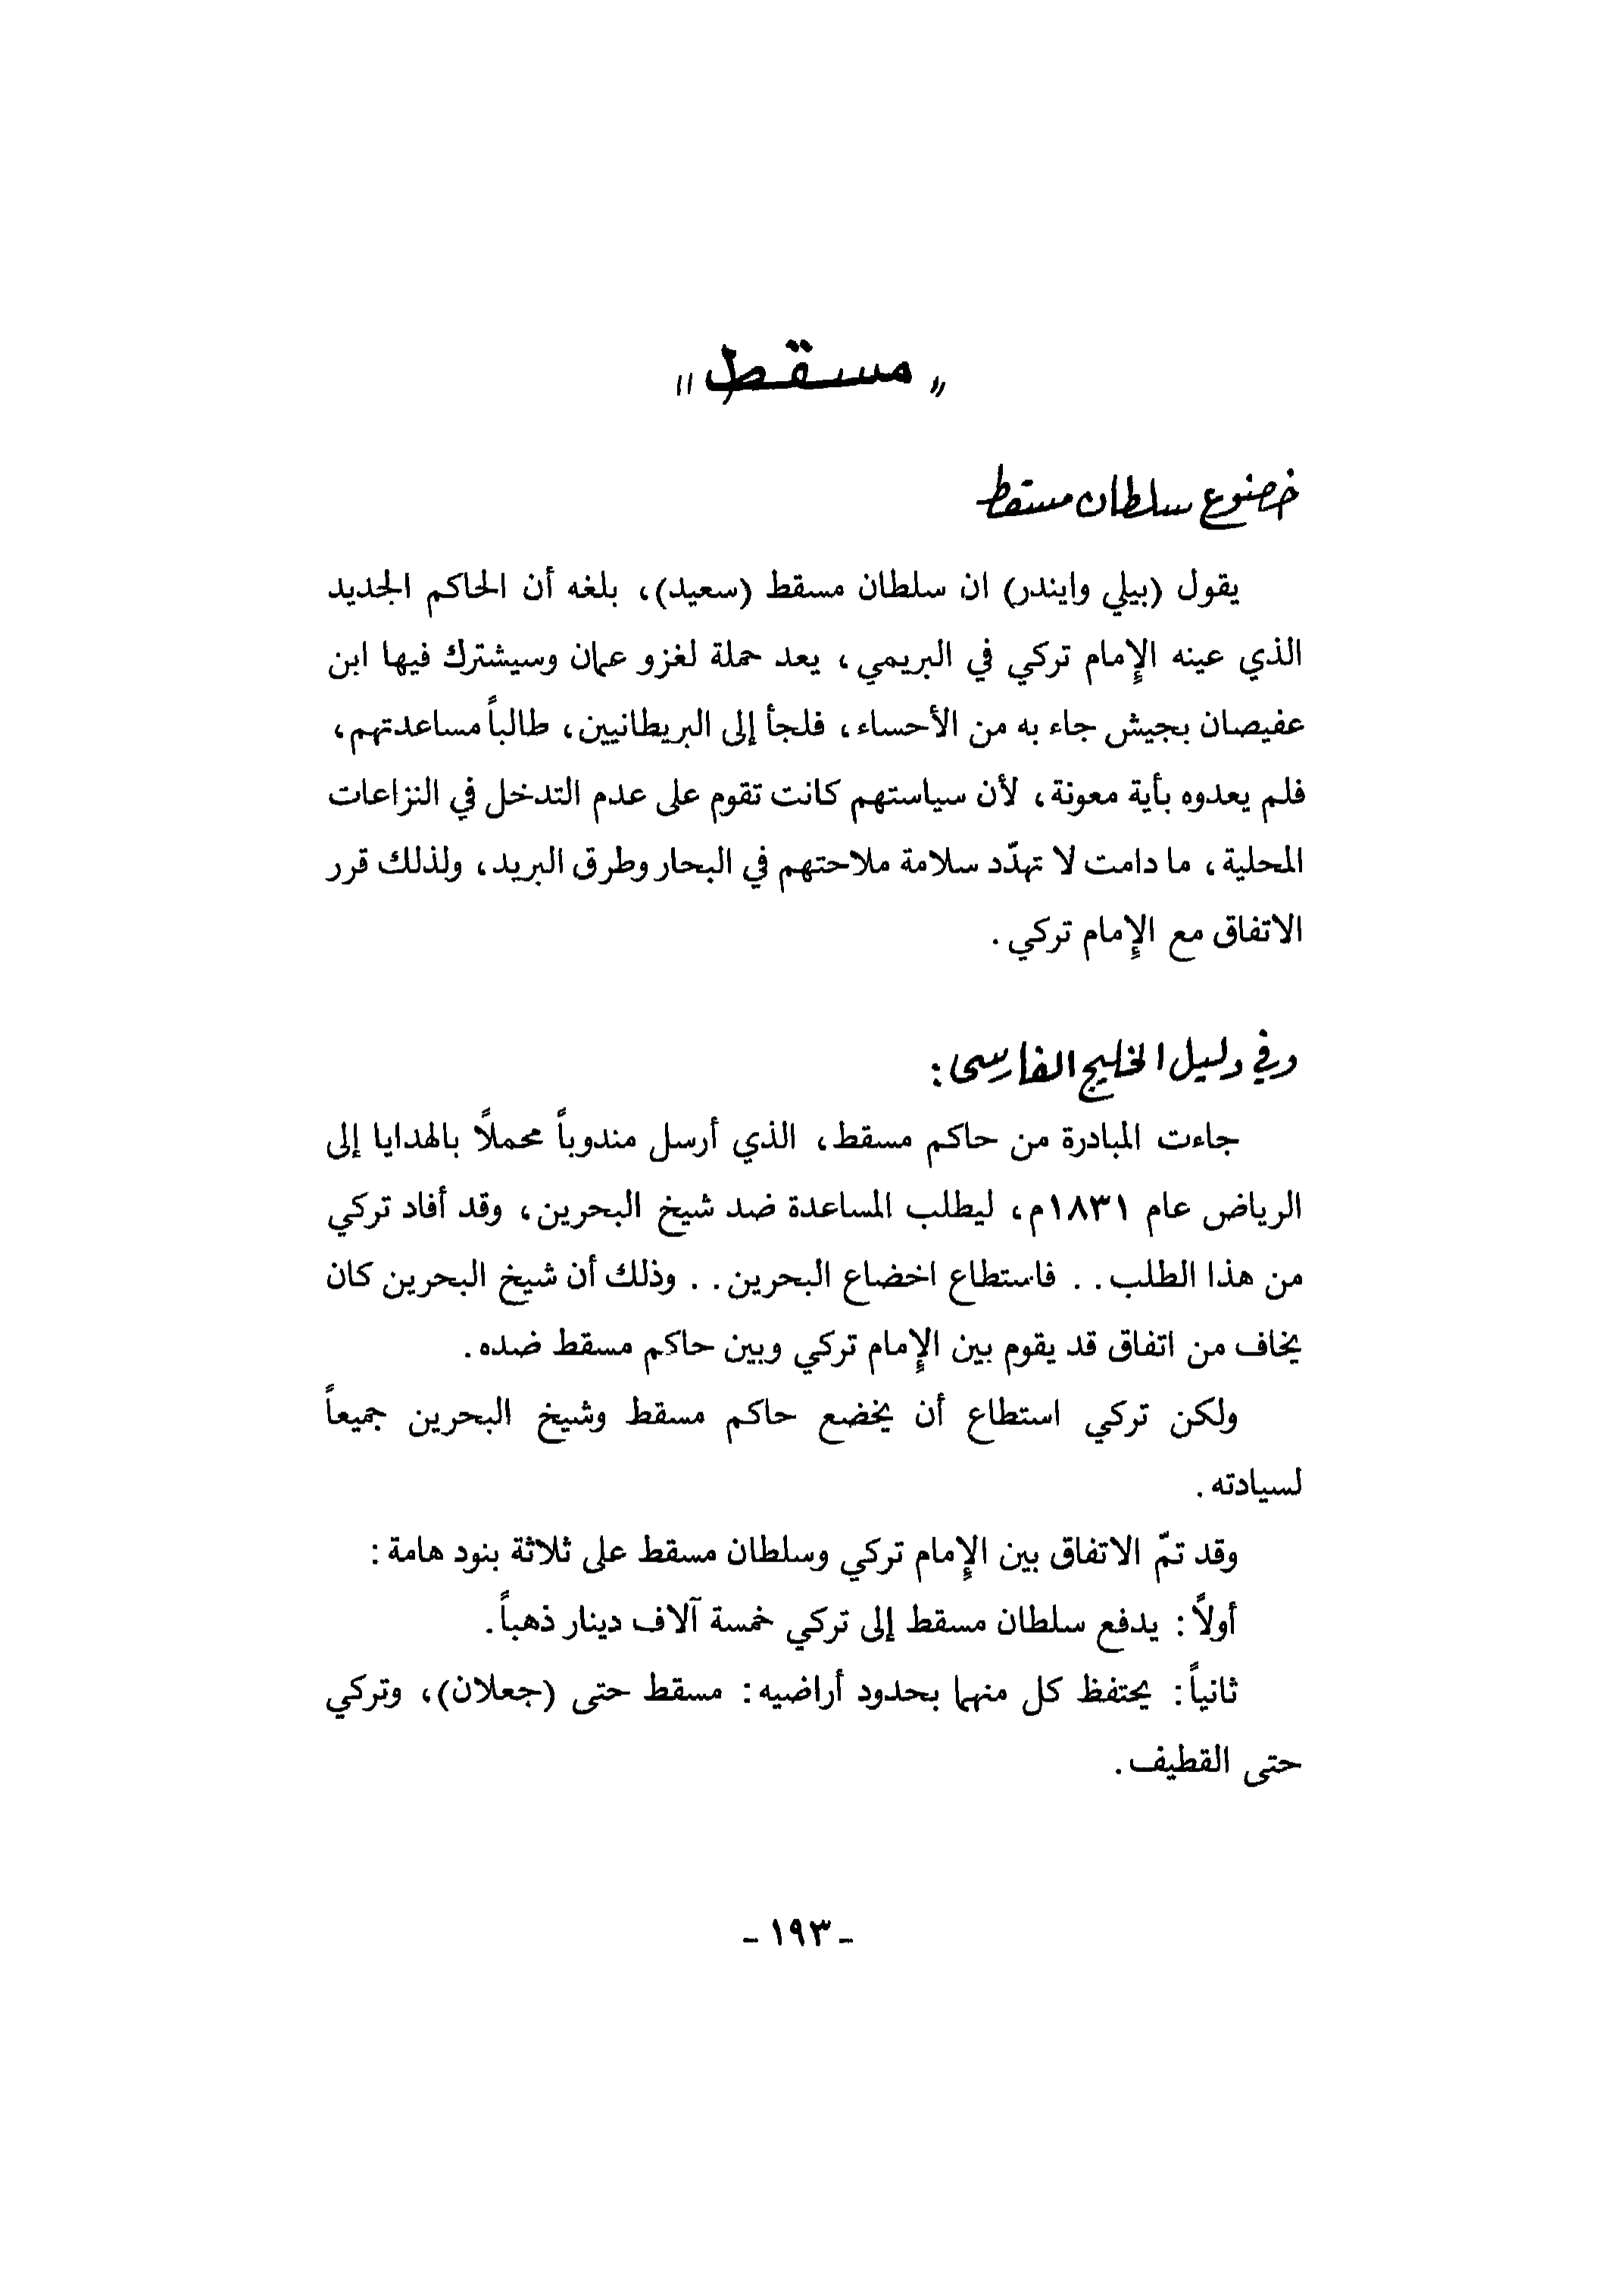 « مسقط »
خضوع سلطان مسقط
يقول (بيلي وايندر) ان سلطان مسقط (سعيد)، بلغه أن الحاكم الجديد
الذي عينه الإمام تركي في البريمي، يعد حملة لغزو عمان وسيشترك فيها ابن
عفيصان بجيش جاء به من الأحساء، فلجأ إلى البريطانيين، طالباً مساعدتهم،
فلم يعدوه بأية معونة، لأن سياستهم كانت تقوم على عدم التدخل في النزاعات
المحلية، ما دامت لا تهدّد سلامة ملاحتهم في البحار وطرق البريد، ولذلك قرر
الاتفاق مع الإمام تركي.
وفي دليل الخليج الفارسي:
جاءت المبادرة من حاكم مسقط، الذي أرسل مندوباً محملاً بالهدايا إلى
الرياض عام ١٨٣١م، ليطلب المساعدة ضد شيخ البحرين، وقد أفاد تركي
من هذا الطلب.. فاستطاع اخضاع البحرين.. وذلك أن شيخ البحرين كان
يخاف من اتفاق قد يقوم بين الإمام تركي وبين حاكم مسقط ضده.
ولكن تركي استطاع أن يخضع حاكم مسقط وشيخ البحرين جميعاً
لسيادته.
وقد تمّ الاتفاق بين الإمام تركي وسلطان مسقط على ثلاثة بنود هامة:
أولاً: يدفع سلطان مسقط إلى تركي خمسة آلاف دينار ذهباً.
ثانياً: يحتفظ كل منهما بحدود أراضيه: مسقط حتى (جعلان)، وتركي
حتى القطيف.
- ١٩٣ -